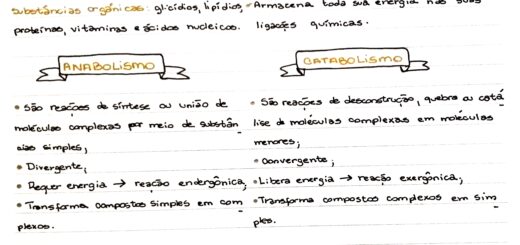 substâncias orgânicas: glicídios, lipídios,
proteínas, vitaminas e ácidos nucleicos.
• Armazena toda sua energia nas suas
ligações químicas.
ANABOLISMO
• São reações de síntese ou união de
moléculas complexas por meio de substân
cias simples;
• Divergente;
• Requer energia → reação endergônica;
• Transforma compostos simples em com
plexos.
CATABOLISMO
• São reações de desconstrução, quebra ou catá
lise de moléculas complexas em moléculas
menores;
• Convergente;
• Libera energia → reação exergônica;
• Transforma compostos complexos em sim
ples.